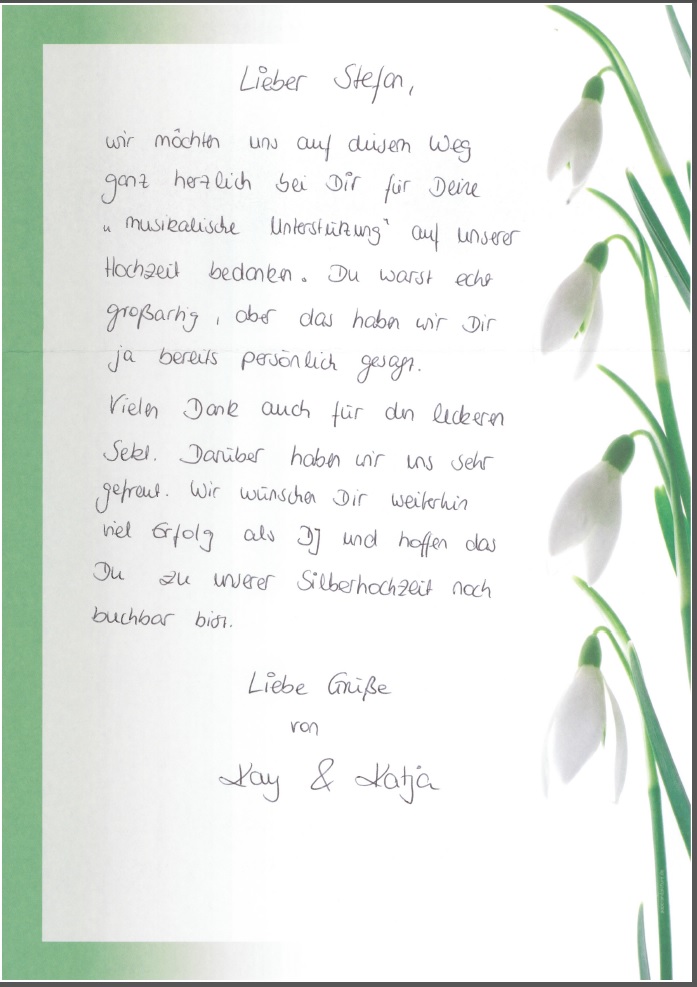 Lieber Stefan,
wir möchten uns auf diesem Weg
ganz herzlich bei Dir für Deine
„musikalische Unterstützung" auf unserer
Hochzeit bedanken. Du warst echt
großartig, aber das haben wir Dir
ja bereits persönlich gesagt.
Vielen Dank auch für den leckeren
Sekt. Darüber haben wir uns sehr
gefreut. Wir wünschen Dir weiterhin
viel Erfolg als DJ und hoffen das
Du zu unserer Silberhochzeit noch
buchbar bist.
Liebe Grüße
von
Kay & Katja